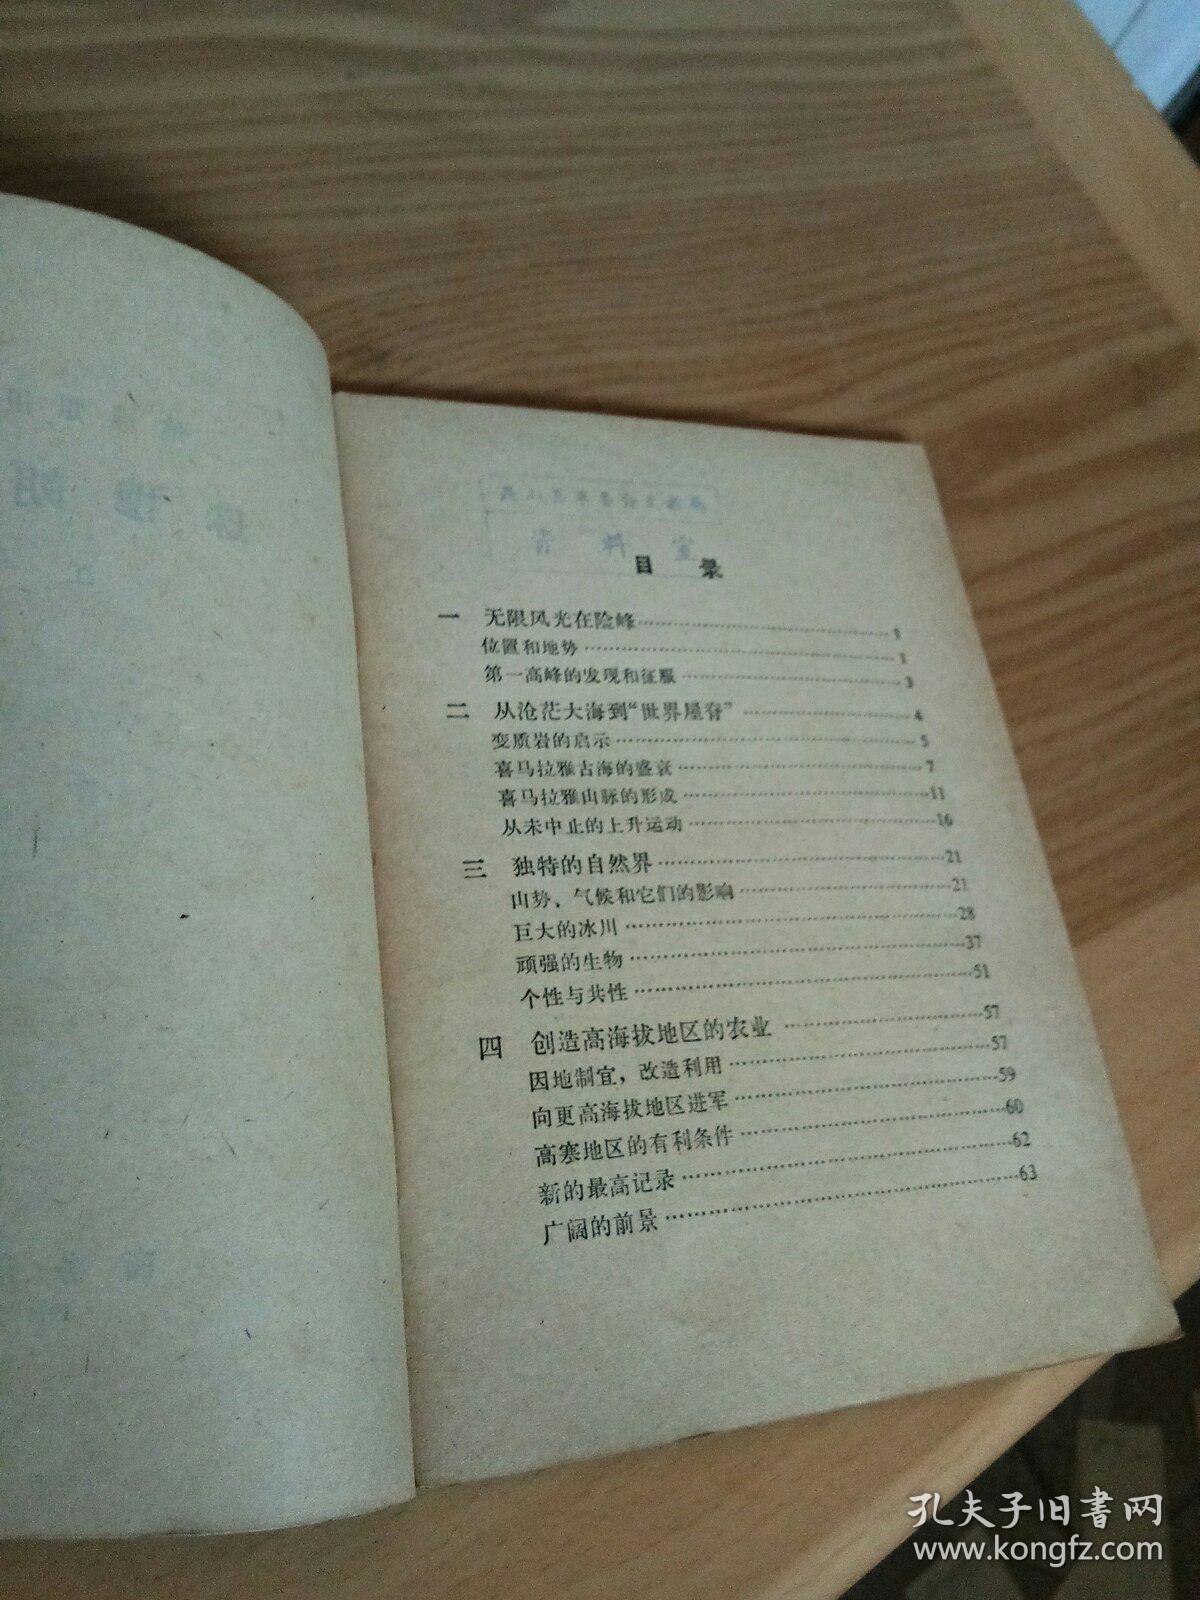 资料室
目录
一 无限风光在险峰……1
位置和地势……1
第一高峰的发现和征服……3
二 从沧茫大海到“世界屋脊”……4
变质岩的启示……5
喜马拉雅古海的盛衰……7
喜马拉雅山脉的形成……11
从未中止的上升运动……16
三 独特的自然界……21
山势、气候和它们的影响……21
巨大的冰川……28
顽强的生物……37
个性与共性……51
四 创造高海拔地区的农业……57
因地制宜，改造利用……57
向更高海拔地区进军……59
高寒地区的有利条件……60
新的最高记录……62
广阔的前景……63
孔夫子旧书网
www.kongfz.com